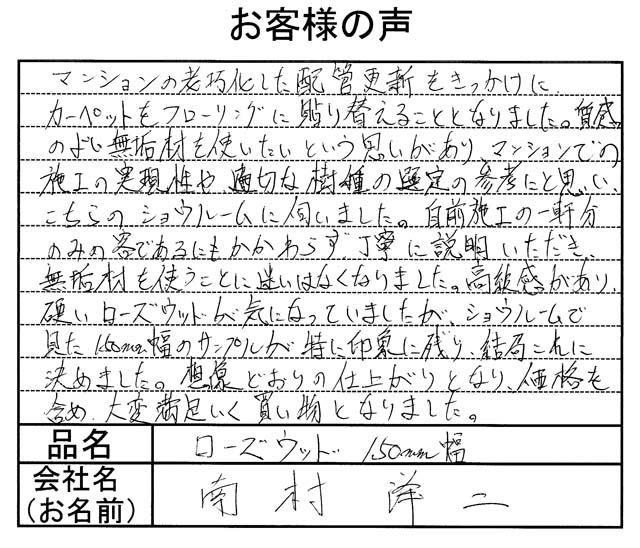 お客様の声
マンションの老朽化した配管更新をきっかけに、
カーペットをフローリングに貼り替えることとなりました。質感
のよい無垢材を使いたいという思いがあり、マンションでの
施工の実現性や適切な樹種の選定の参考にと思い、
こちらのショウルームに伺いました。自前施工の一軒分
のみの客であるにもかかわらず、丁寧に説明いただき、
無垢材を使うことに迷いはなくなりました。高級感があり、
硬いローズウッドが気になっていましたが、ショウルームで
見た150mm幅のサンプルが特に印象に残り、結局これに
決めました。想像どおりの仕上がりとなり、価格も
含め、大変満足いく買い物となりました。
品名 ローズウッド 150mm幅
会社名
(お名前) 南村 洋二